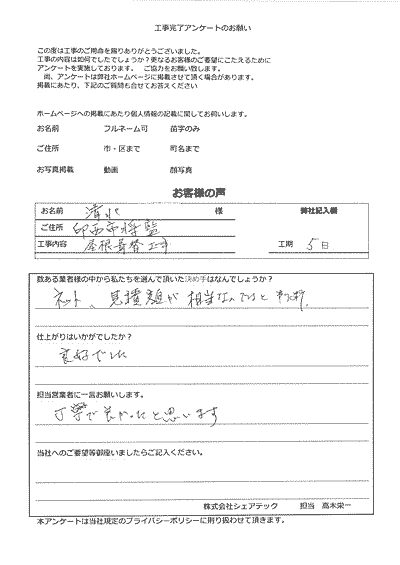 工事完了アンケートのお願い
この度は工事のご用命を賜りありがとうございました。
工事の内容は如何でしたでしょうか？更なるお客様のご要望にこたえるために
アンケートを実施しております。 ご協力をお願い致します。
尚、アンケートは弊社ホームページに掲載させて頂く場合があります。
掲載にあたり、下記のご質問も合せてお答えください
ホームページへの掲載にあたり個人情報の記載に関してお伺いします。
お名前 フルネーム可 苗字のみ
ご住所 市・区まで 町名まで
お写真掲載 動画 顔写真
お客様の声
お名前 清水 様 弊社記入欄
ご住所 印西市将監
工事内容 屋根葺替工事 工期 5日
数ある業者様の中から私たちを選んで頂いた決め手はなんでしょうか？
ネット、見積額が相当なのでは と判断、
仕上がりはいかがでしたか？
良好でした
担当営業者に一言お願いします。
丁寧で良かったと思います
当社へのご要望等御座いましたらご記入ください。
株式会社シェアテック 担当 高木栄一
本アンケートは当社規定のプライバシーポリシーに則り扱わせて頂きます。